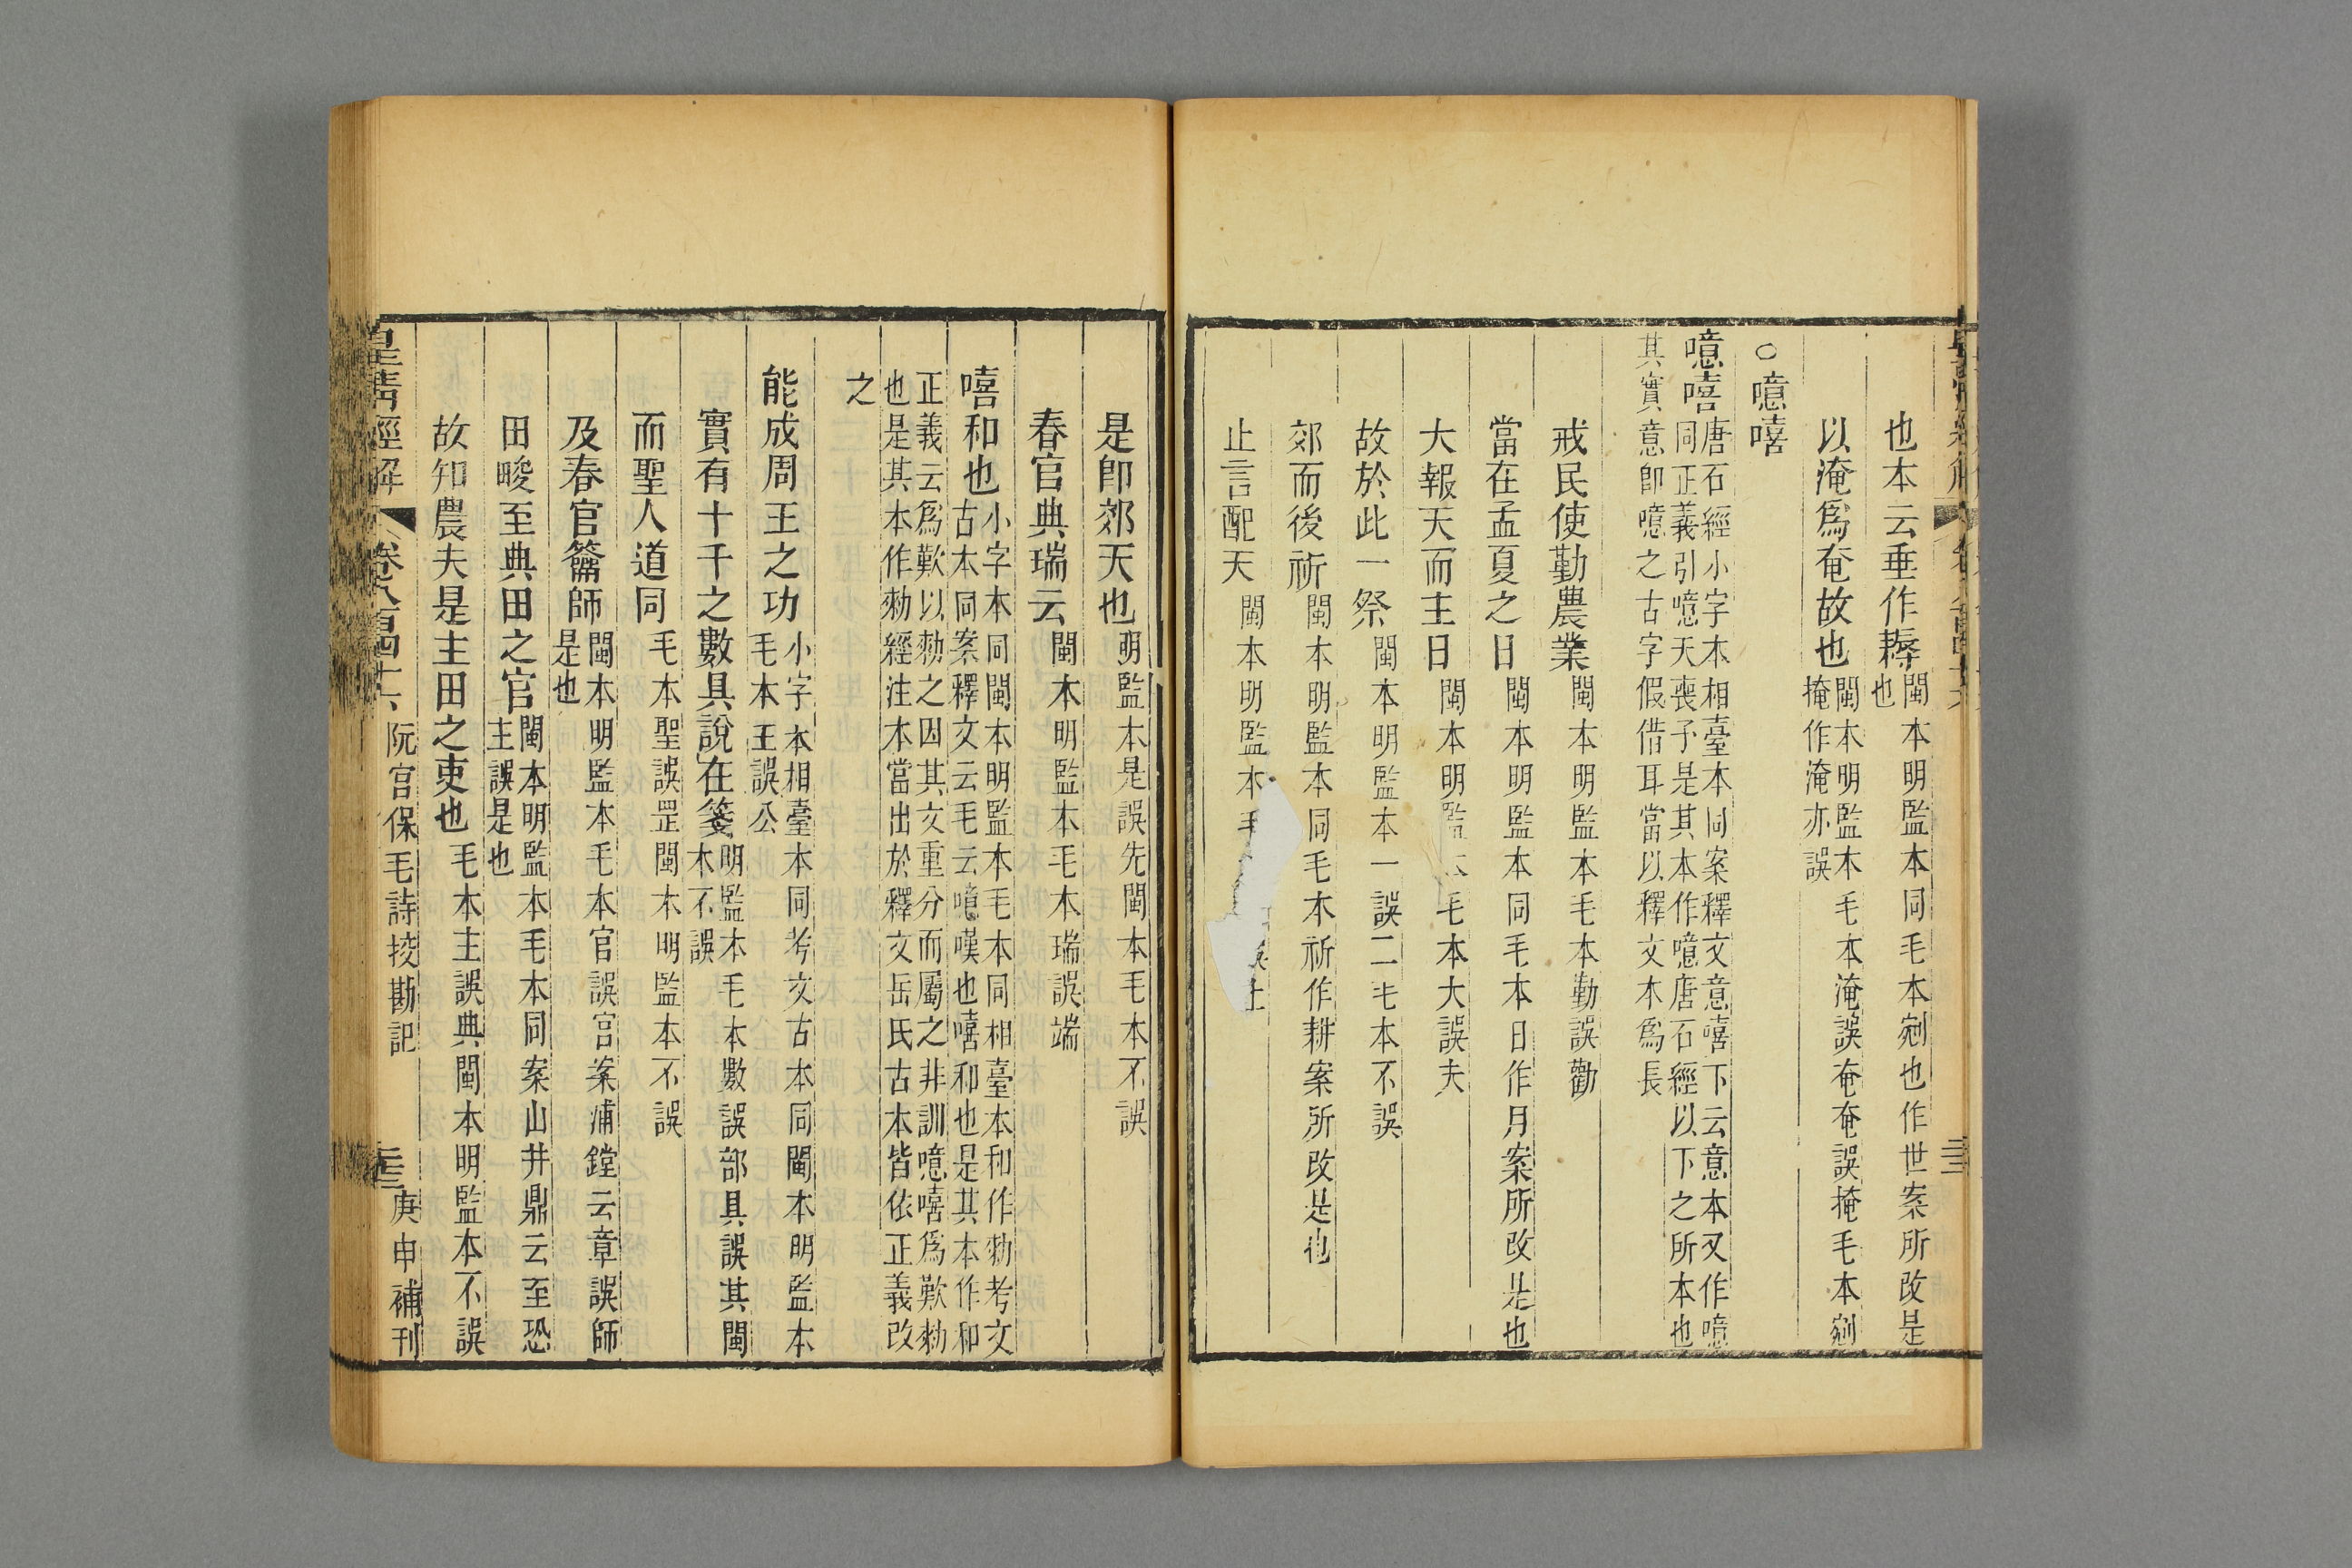 也本云垂作耨閩本明監本同毛本剜也作世案所改是
也
以淹爲奄故也閩本明監本毛本淹誤奄奄誤掩毛本剜
掩作淹亦誤
○噫嘻
噫嘻唐石經小字本相臺本同案釋文意嘻下云意本又作噫
同正義引噫天喪予是其本作噫唐石經以下之所本也
其實意卽噫之古字假借耳當以釋文本爲長
戒民使勤農業閩本明監本毛本勤誤勸
當在孟夏之日閩本明監本同毛本日作月案所改是也
大報天而主日閩本明監本毛本大誤夫
故於此一祭閩本明監本一誤二毛本不誤
郊而後祈閩本明監本同毛本祈作耕案所改是也
止言配天閩本明監本毛誤上
是卽郊天也明監本是誤先閩本毛本不誤
春官典瑞云閩本明監本毛本瑞誤端
嘻和也小字本同閩本明監本毛本同相臺本和作勑考文
古本同案釋文云毛云噫嘆也嘻和也是其本作和
正義云爲歎以勑之因其文重分而屬之非訓噫嘻爲歎勑
也是其本作勑經注本當出於釋文岳氏古本皆依正義改
之
能成周王之功小字本相臺本同考文古本同閩本明監本
毛本王誤公
實有十千之數具說在箋明監本毛本數誤部具誤其閩
本不誤
而聖人道同毛本聖誤罡閩本明監本不誤
及春官籥師閩本明監本毛本官誤宫案浦鏜云章誤師
是也
田畯至典田之官閩本明監本毛本同案山井鼎云至恐
主誤是也
故知農夫是主田之吏也毛本主誤典閩本明監本不誤
皇清經解 卷八百四十六 阮宫保毛詩挍勘記 三三 庚申補刊